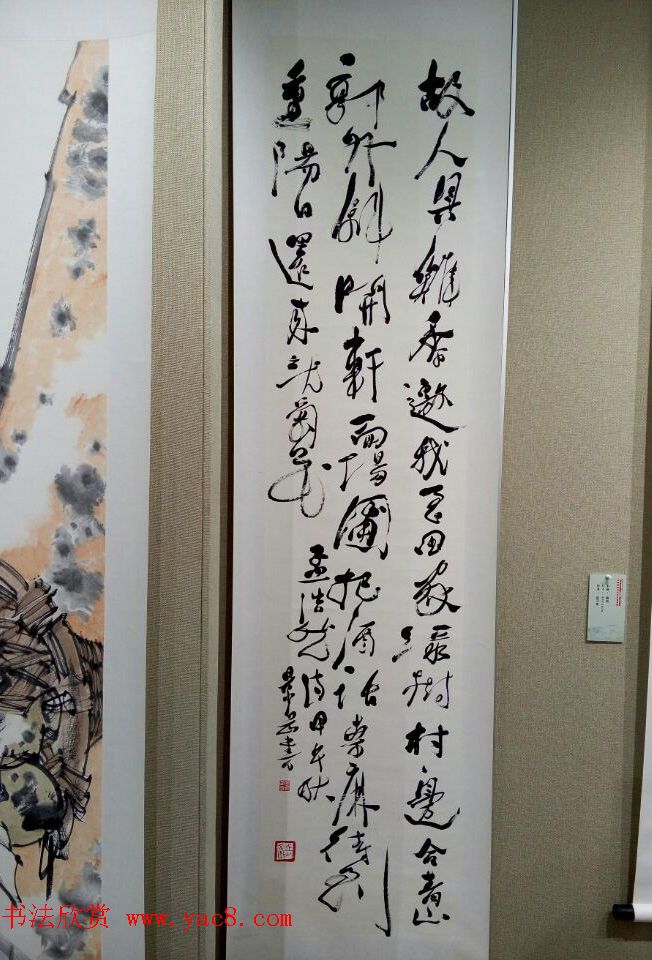 故人具雞黍邀我至田家綠樹村邊合青山
郭外斜開軒面場圃把酒話桑麻待到
重陽日還來就菊花
孟浩然詩甲午秋
書
书法欣赏 www.yac8.com